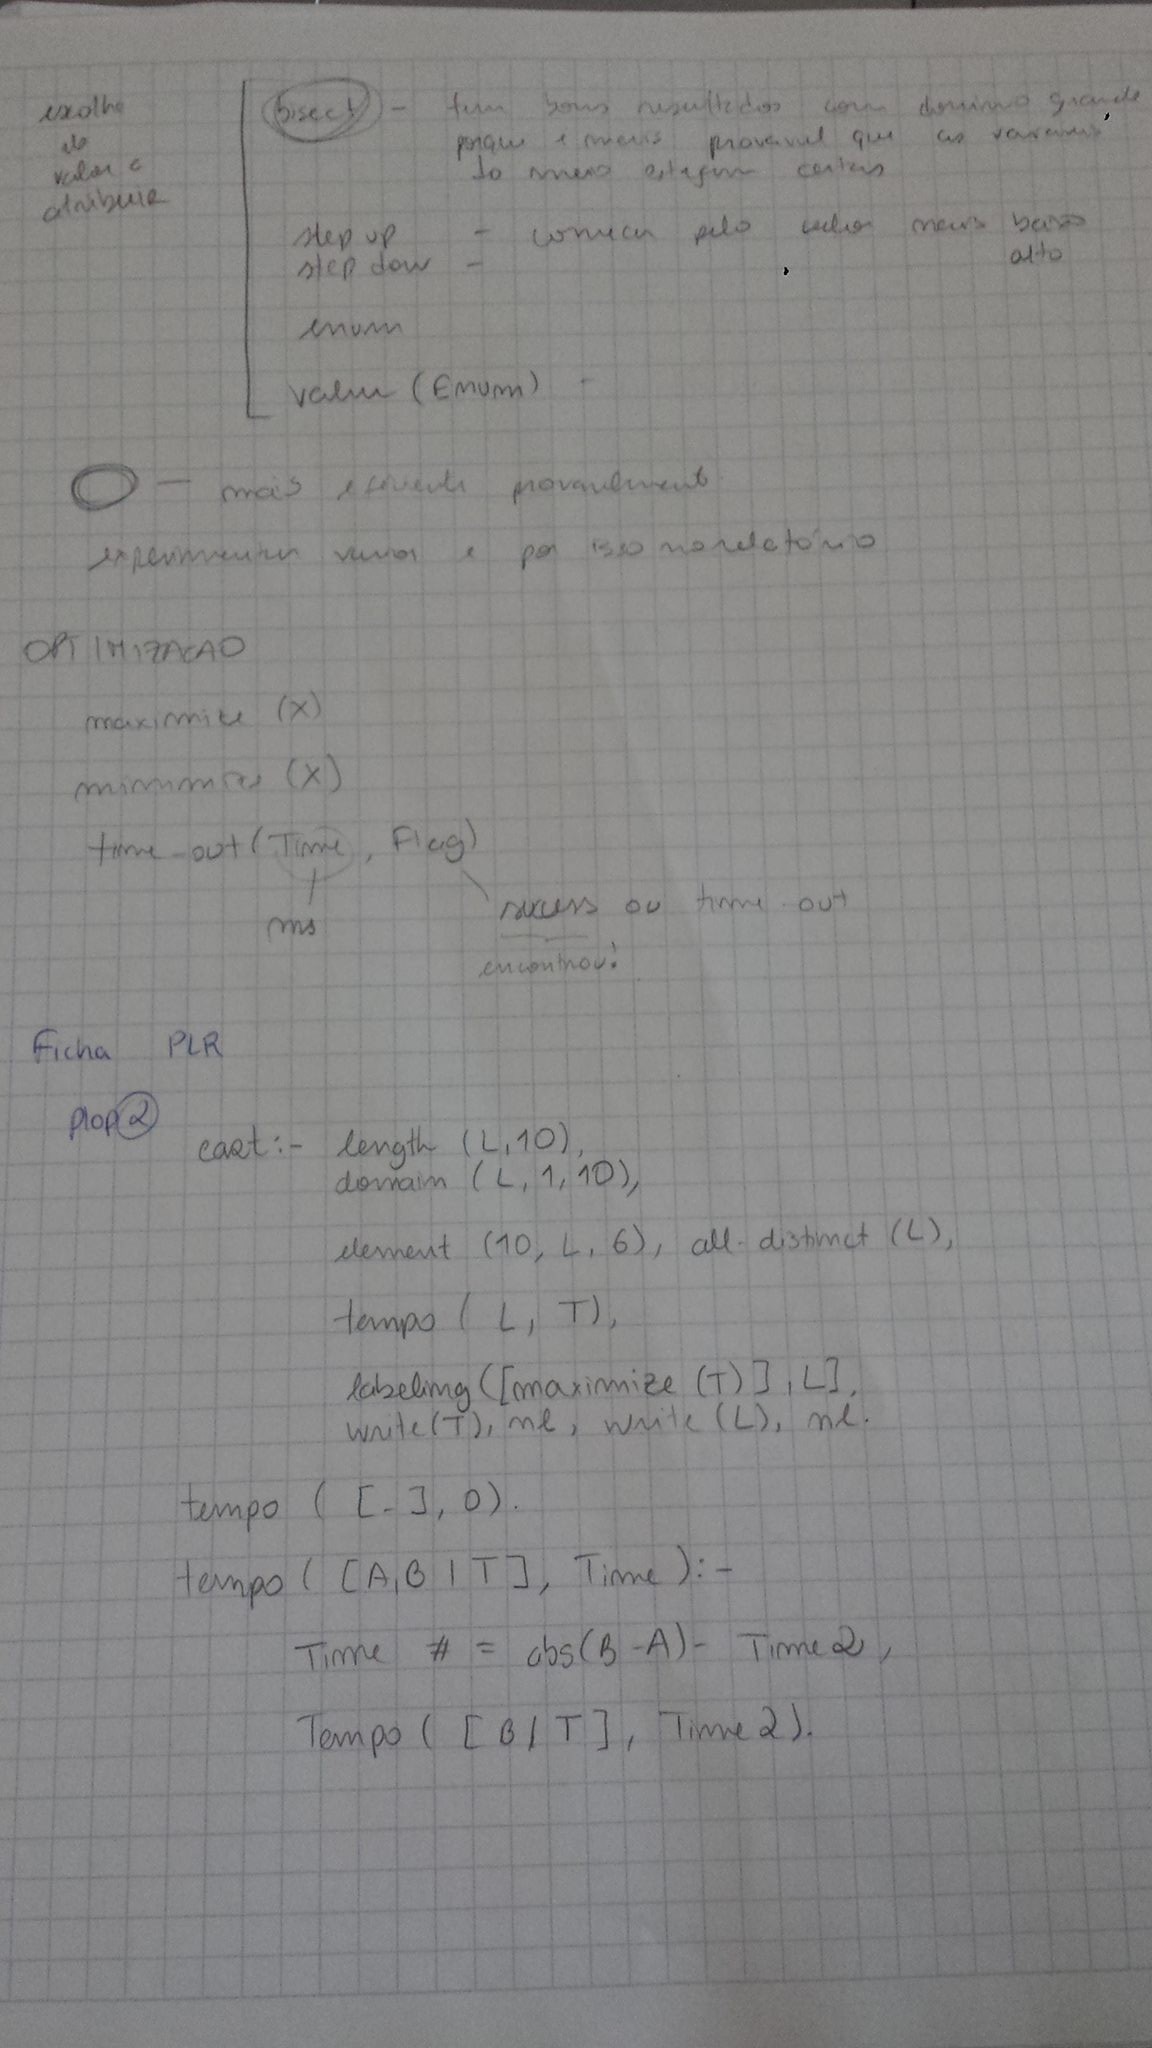 escolha
do
valor a
atribuir
bisect - tem bons resultados com dominio grande
porque é mais provavel que as variaveis
do meio estejam certas
step up - começa pelo valor mais baixo
step dow - alto
enum
value (Enum) -
- mais eficiente provavelmente
experimentar varios e por isso no relatório
OPTIMIZAÇAO
maximize (X)
minimize (X)
time-out (Time, Flag)
ms
success ou time out
encontrou!
Ficha PLR
prop 2
cart:- length (L,10),
domain (L, 1, 10),
element (10, L, 6), all-distinct (L),
tempo ( L, T),
labeling ([maximize (T)], L],
write(T), nl, write (L), nl.
tempo ( [-], 0).
tempo ( [A,B | T], Time ):-
Time # = abs(B-A)- Time2,
Tempo ( [ B / T ], Time2).